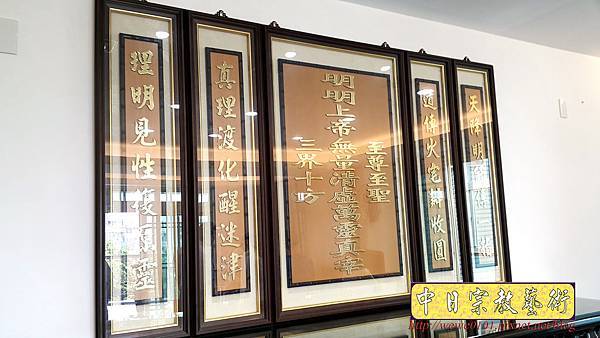 天降明
道傳火宅辦收圓
至尊至聖
明明上帝無量清虛萬靈真宰
三界十方
真理渡化醒迷津
理明見性復真靈
中日宗教藝術
http://wewe0101.pixnet.net/blog